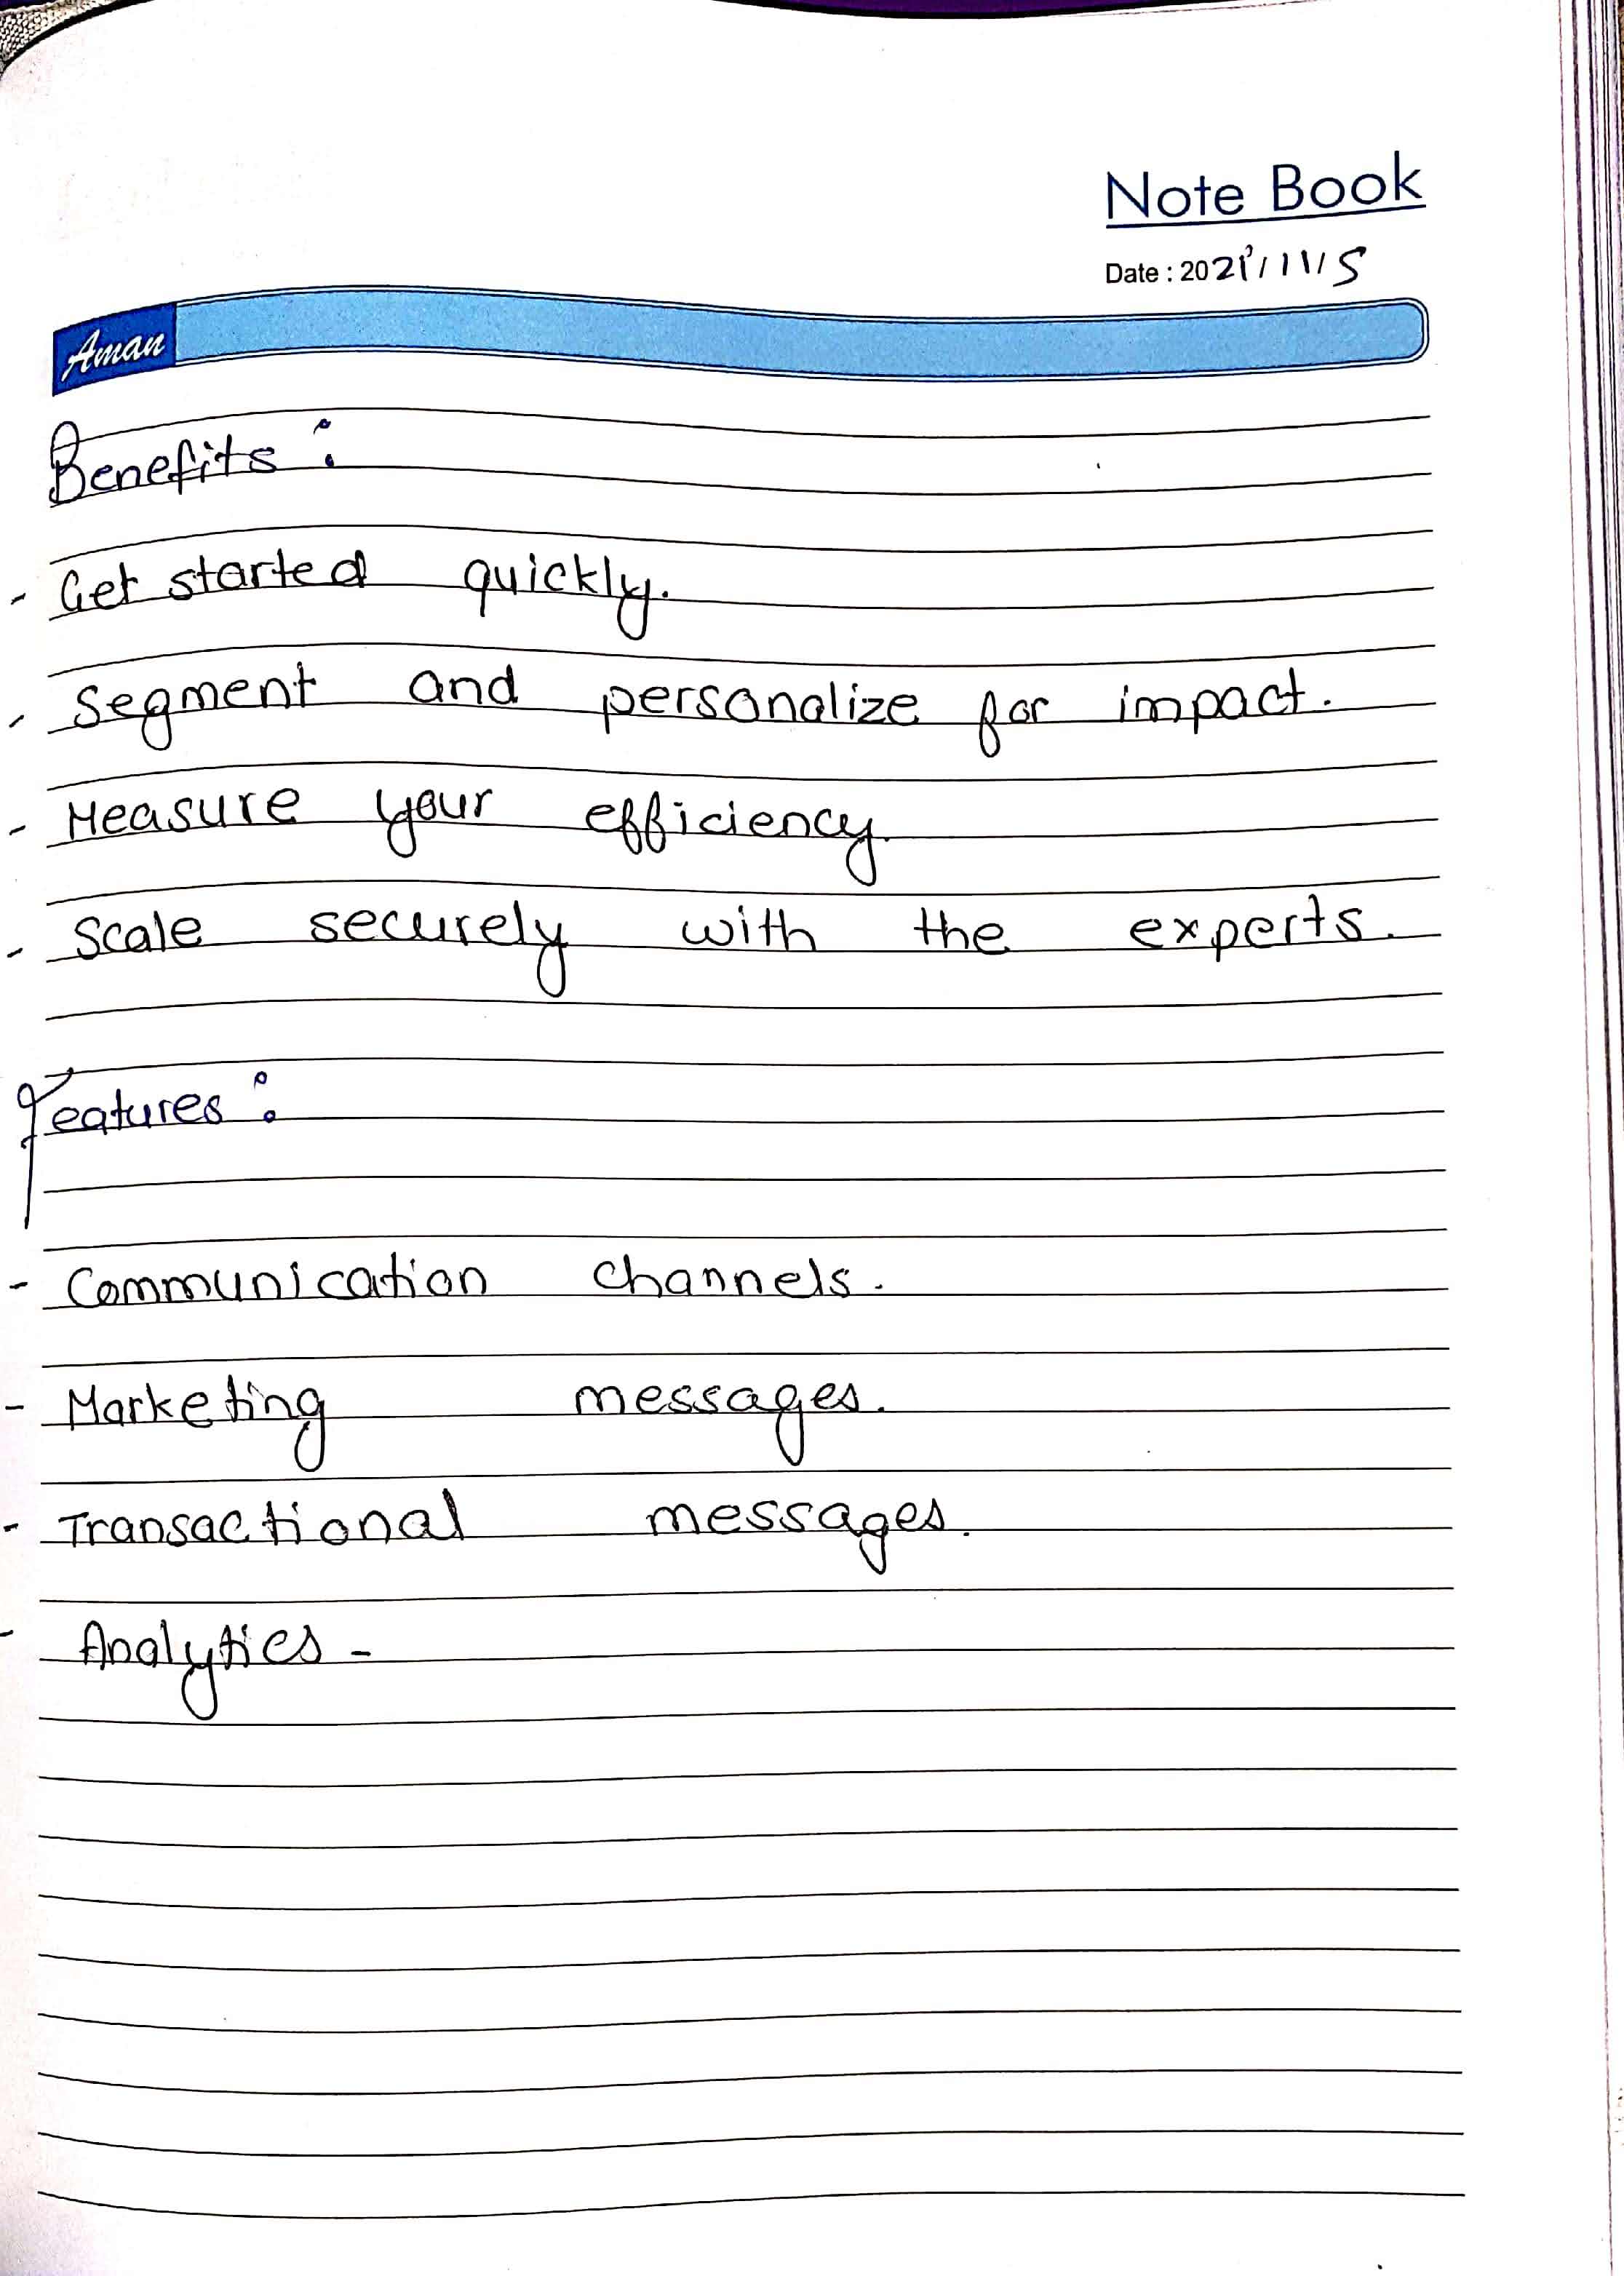 Note Book
Date : 2021/11/5
Aman
Benefits :
- Get started quickly.
- Segment and personalize for impact.
- Measure your efficiency.
- Scale securely with the experts.
Features :
- Communication channels.
- Marketing messages.
- Transactional messages.
- Analytics -